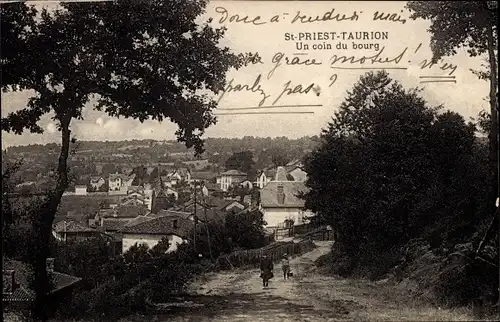 Donc à vendredi mais
St-PRIEST-TAURION
Un coin du bourg
de grâce motus!
n'en
parlez pas!